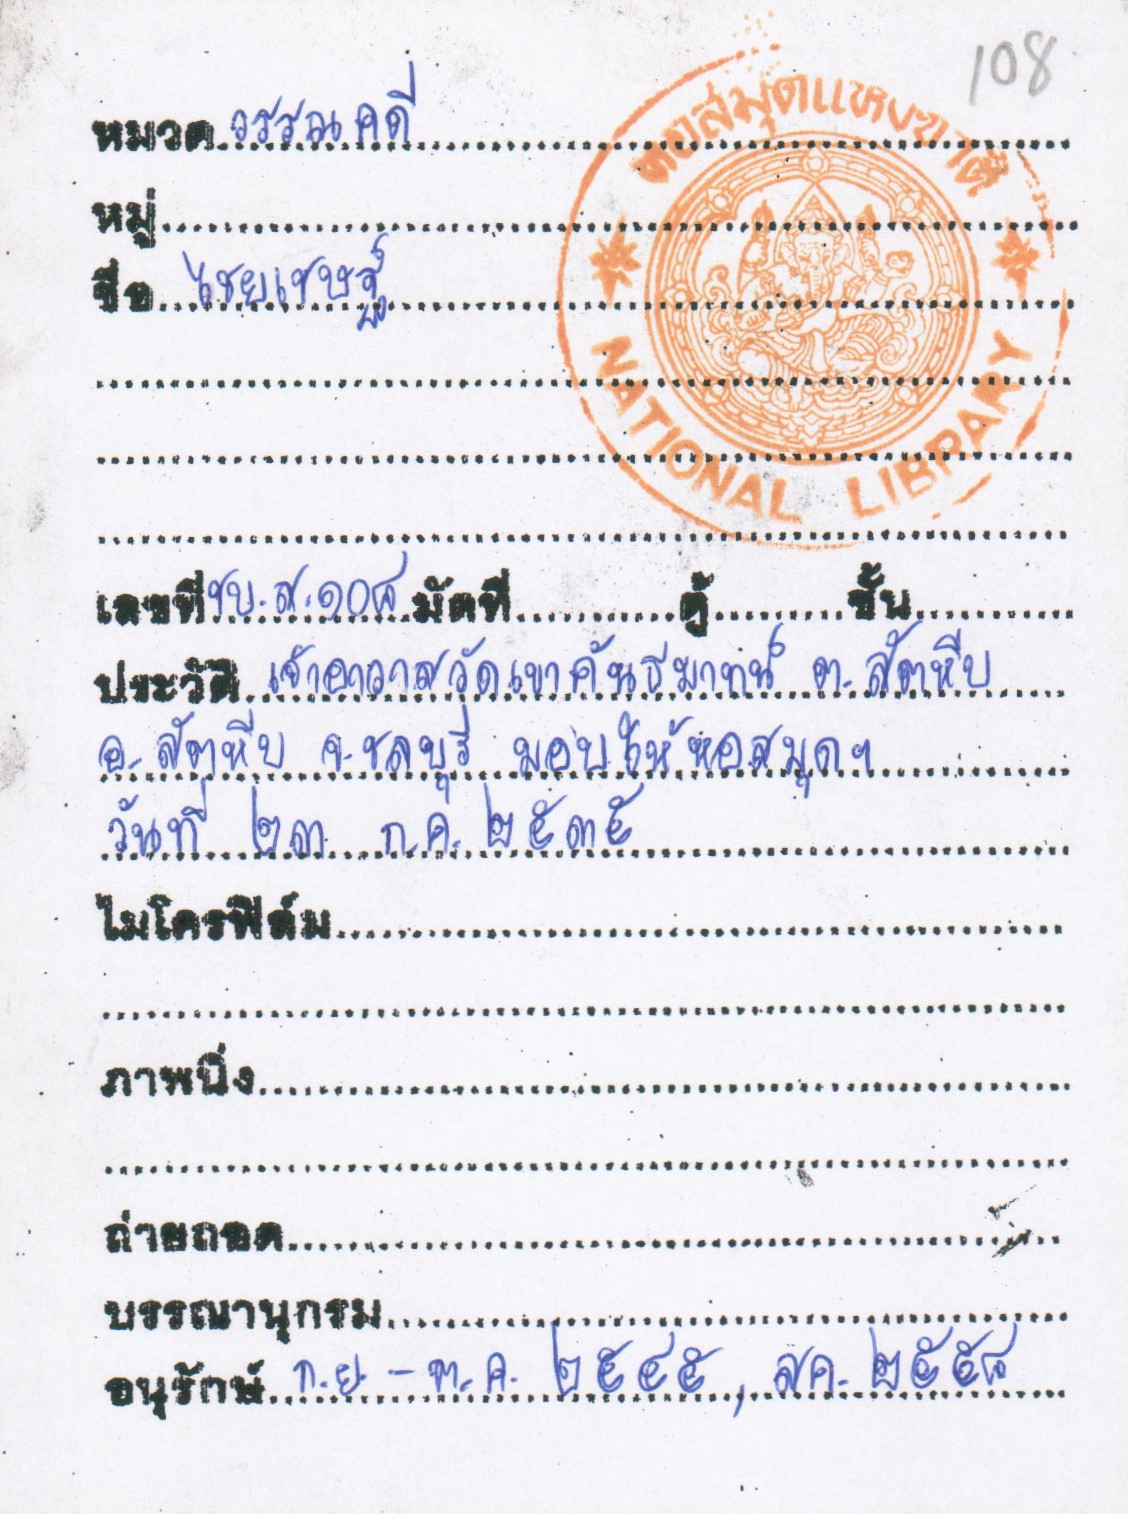 108
หอสมุดแห่งชาติ
NATIONAL LIBRARY
หมวด วรรณคดี
หมู่
ชื่อ ไชยเชษฐ์
เลขที่ ชบ.ส.๑๐๘ มัดที่ ตู้ ชั้น
ประวัติ เจ้าอาวาสวัดเขาคันธมาทน์ ต.สัตหีบ
อ.สัตหีบ จ.ชลบุรี มอบให้หอสมุดฯ
วันที่ ๒๓ ก.ค. ๒๕๓๕
ไมโครฟิล์ม
ภาพนิ่ง
ถ่ายถอด
บรรณานุกรม
อนุรักษ์ ก.ย. - ต.ค. ๒๕๔๕, สค. ๒๕๕๘